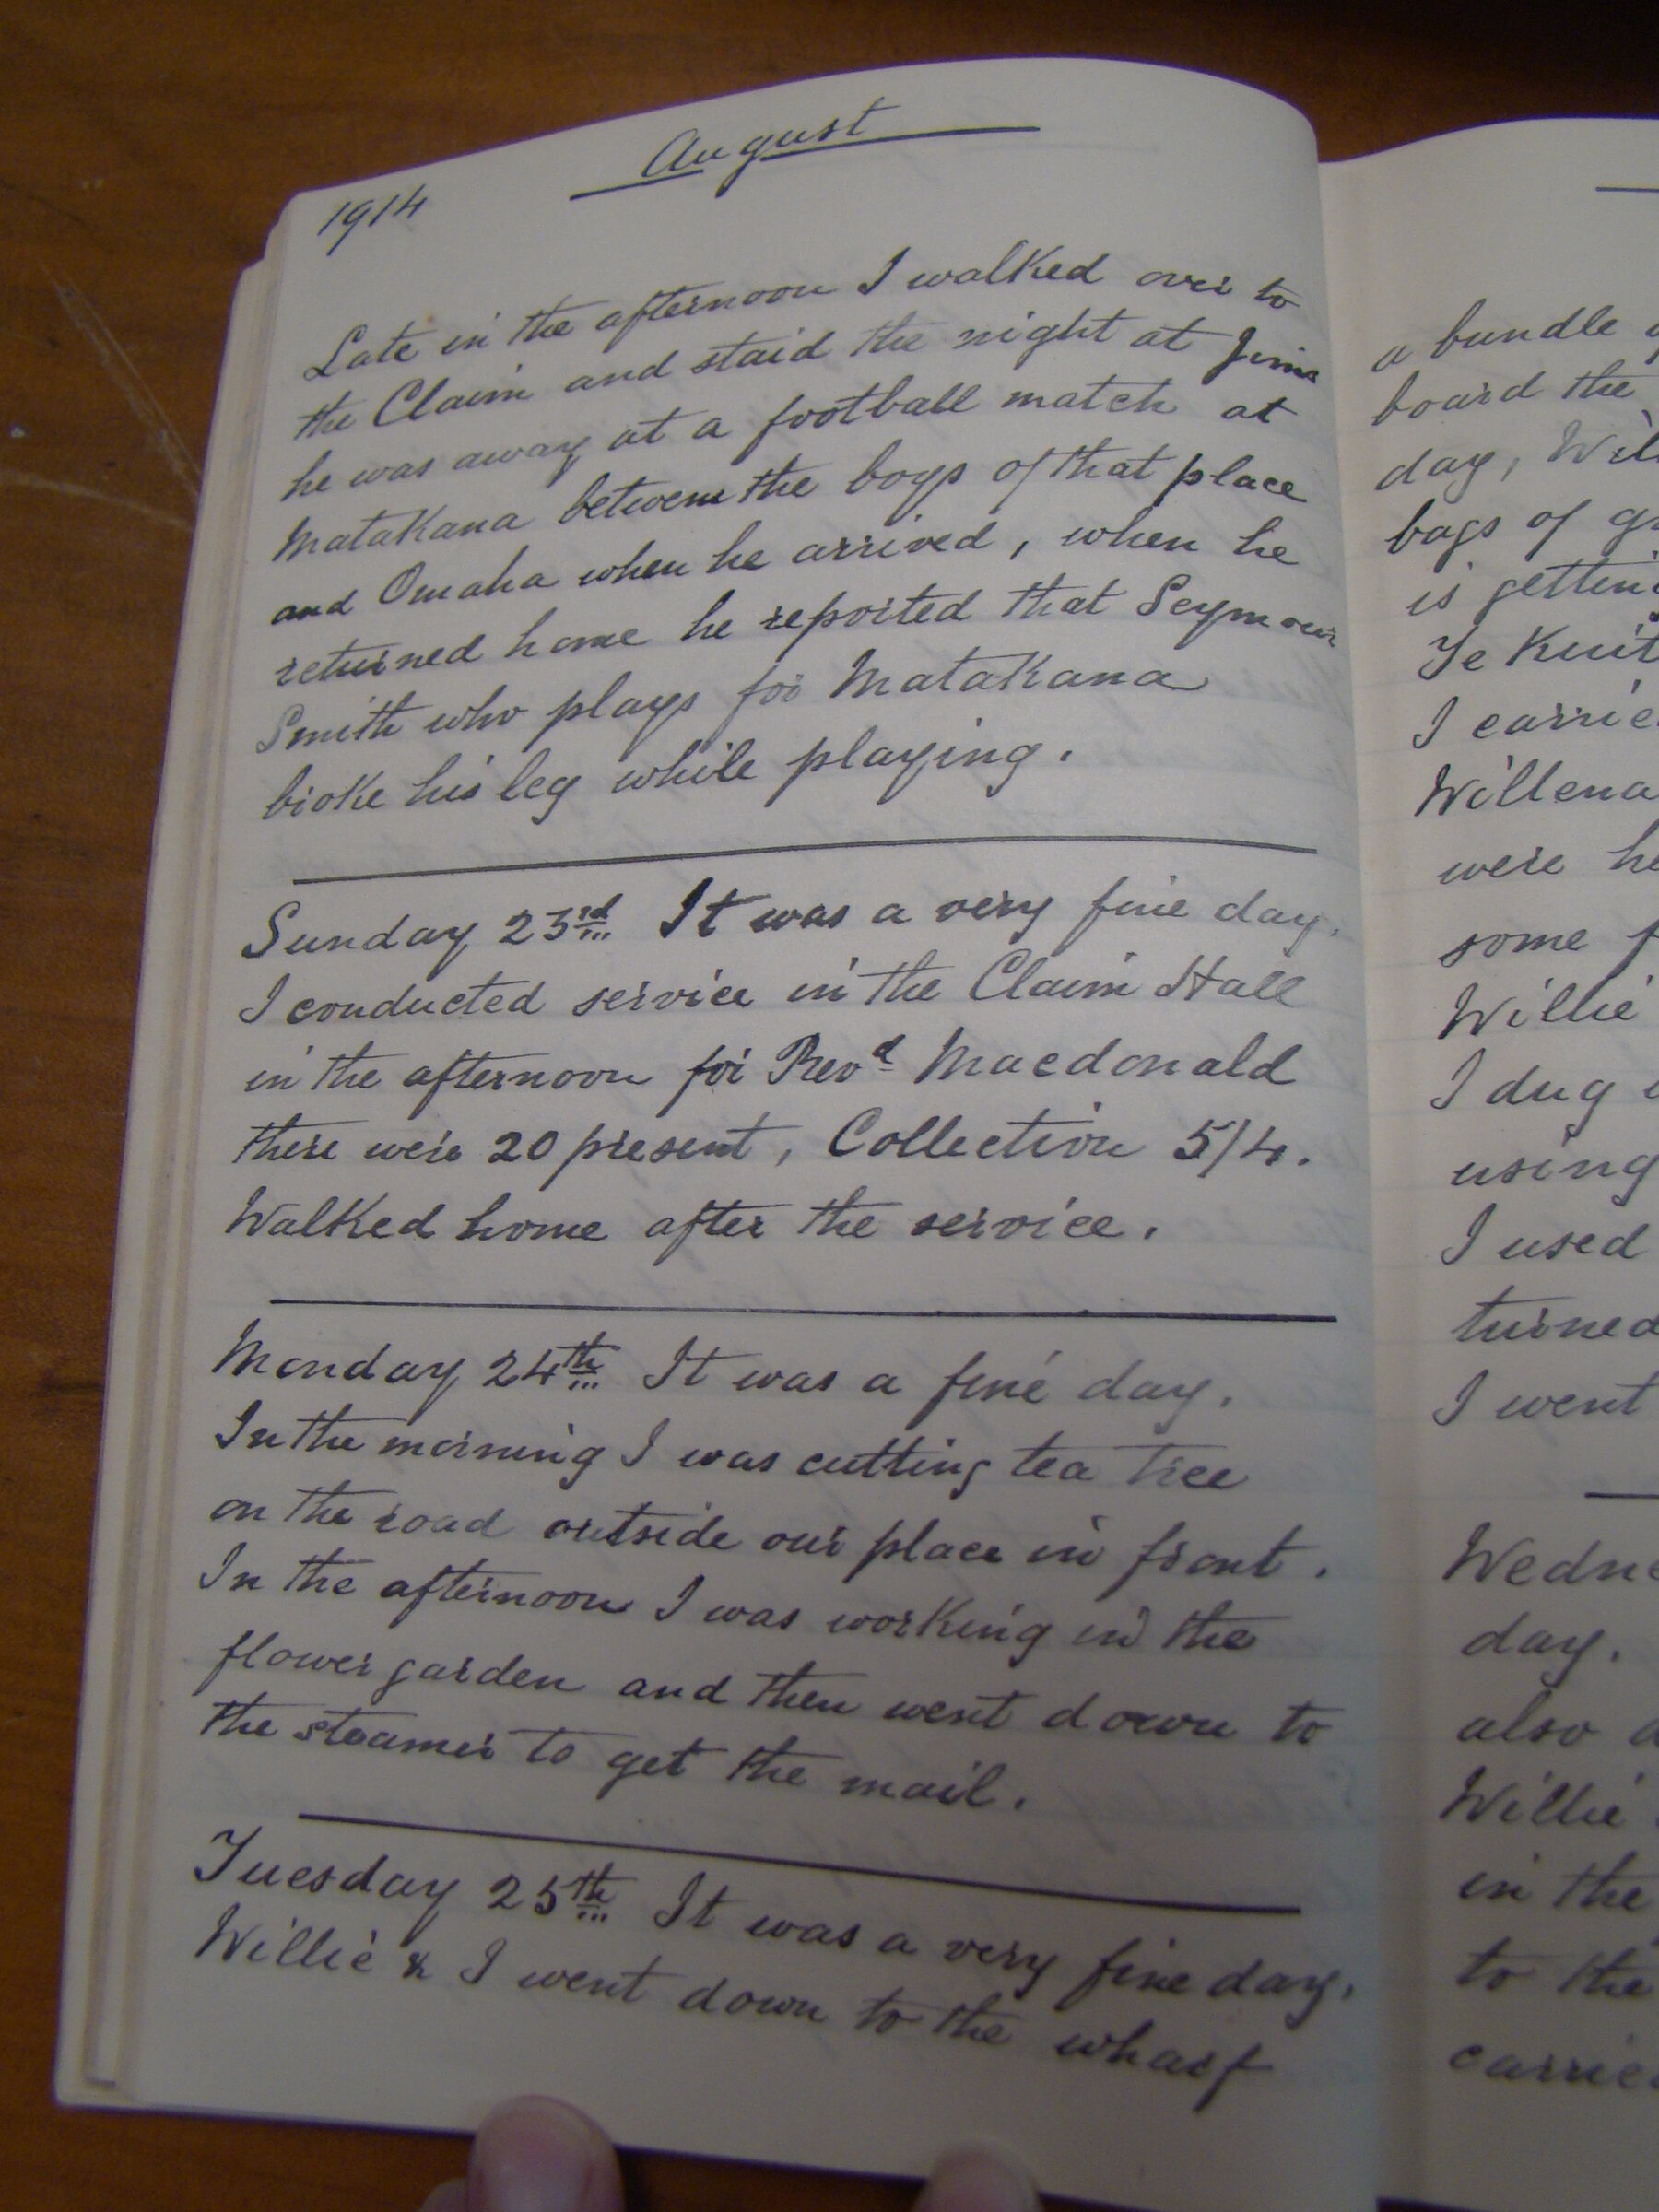 August
1914
Late in the afternoon I walked over to
the Claim and staid the night at Jims
he was away at a football match at
Matakana between the boys of that place
and Omaha when he arrived, when he
returned home he reported that Seymour
Smith who plays for Matakana
broke his leg while playing.
Sunday 23rd It was a very fine day.
I conducted service in the Claim Hall
in the afternoon for Revd Macdonald
there were 20 present, Collection 5/4.
Walked home after the service.
Monday 24th It was a fine day.
In the morning I was cutting tea tree
on the road outside our place in front.
In the afternoon I was working in the
flower garden and then went down to
the steamer to get the mail.
Tuesday 25th It was a very fine day.
Willie & I went down to the wharf
a bundle
board the
day,
bags of
is
Te
I
were
some
Willie
I dug
using
I used
turned
I went
day.
also
Willie
in the
to the